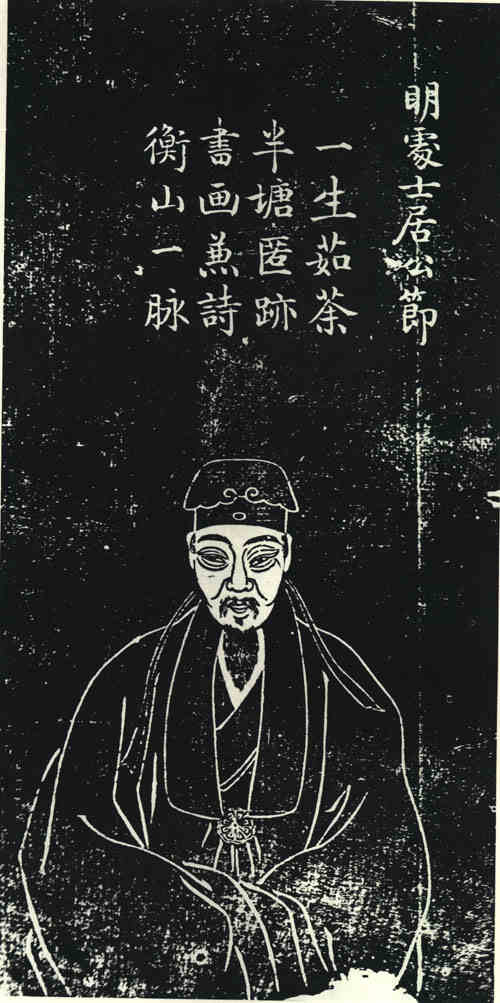 明處士居公節
一生茹荼
半塘匿跡
書画蒹詩
衡山一脉